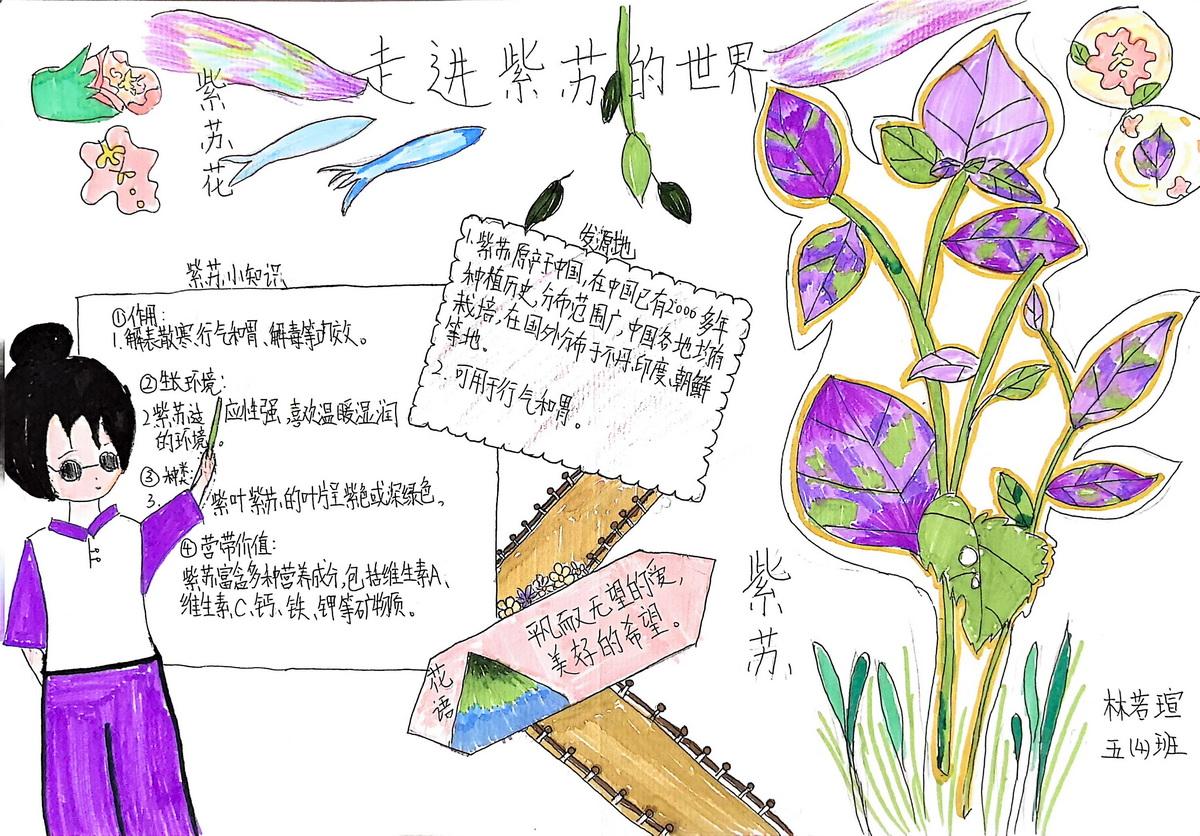 走进紫苏的世界
紫苏花
紫苏小知识
①作用:
1.解表散寒,行气和胃、解毒等功效。
②生长环境:
2紫苏适应性强,喜欢温暖湿润
的环境。
③种类:
3.紫叶紫苏的叶片呈紫色或深绿色。
④营带价值:
紫苏富含多种营养成分,包括维生素A、
维生素C、钙、铁、钾等矿物质。
发源地
1.紫苏原产于中国,在中国已有2000多年
种植历史,分布范围广,中国各地均有
栽培,在国外分布于不丹、印度、朝鲜
等地。
2.可用于行气和胃。
花语
平凡而无望的爱,
美好的希望。
紫苏
林若瑄
五(4)班